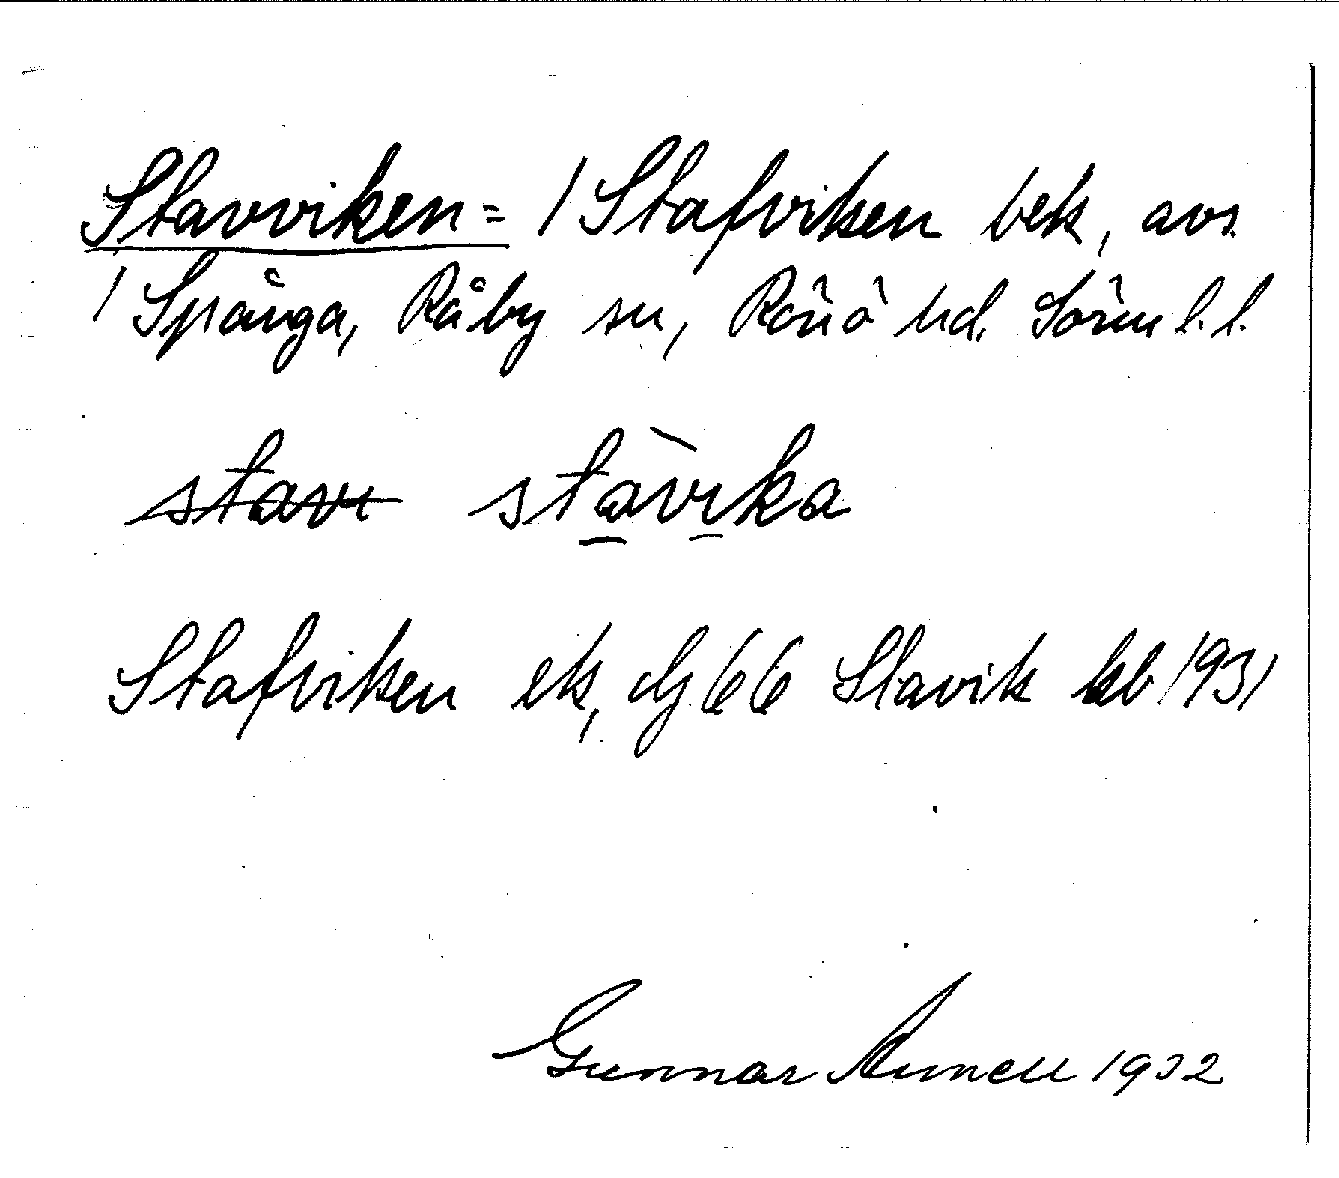 Stavviken = / Stafviken bek, avs.
/ Spånga, Råby sn, Rönö hd. Sörml. l.
stavi stàvika
Stafviken ek, dj 66 Stavik kb 1931
Gunnar 1932